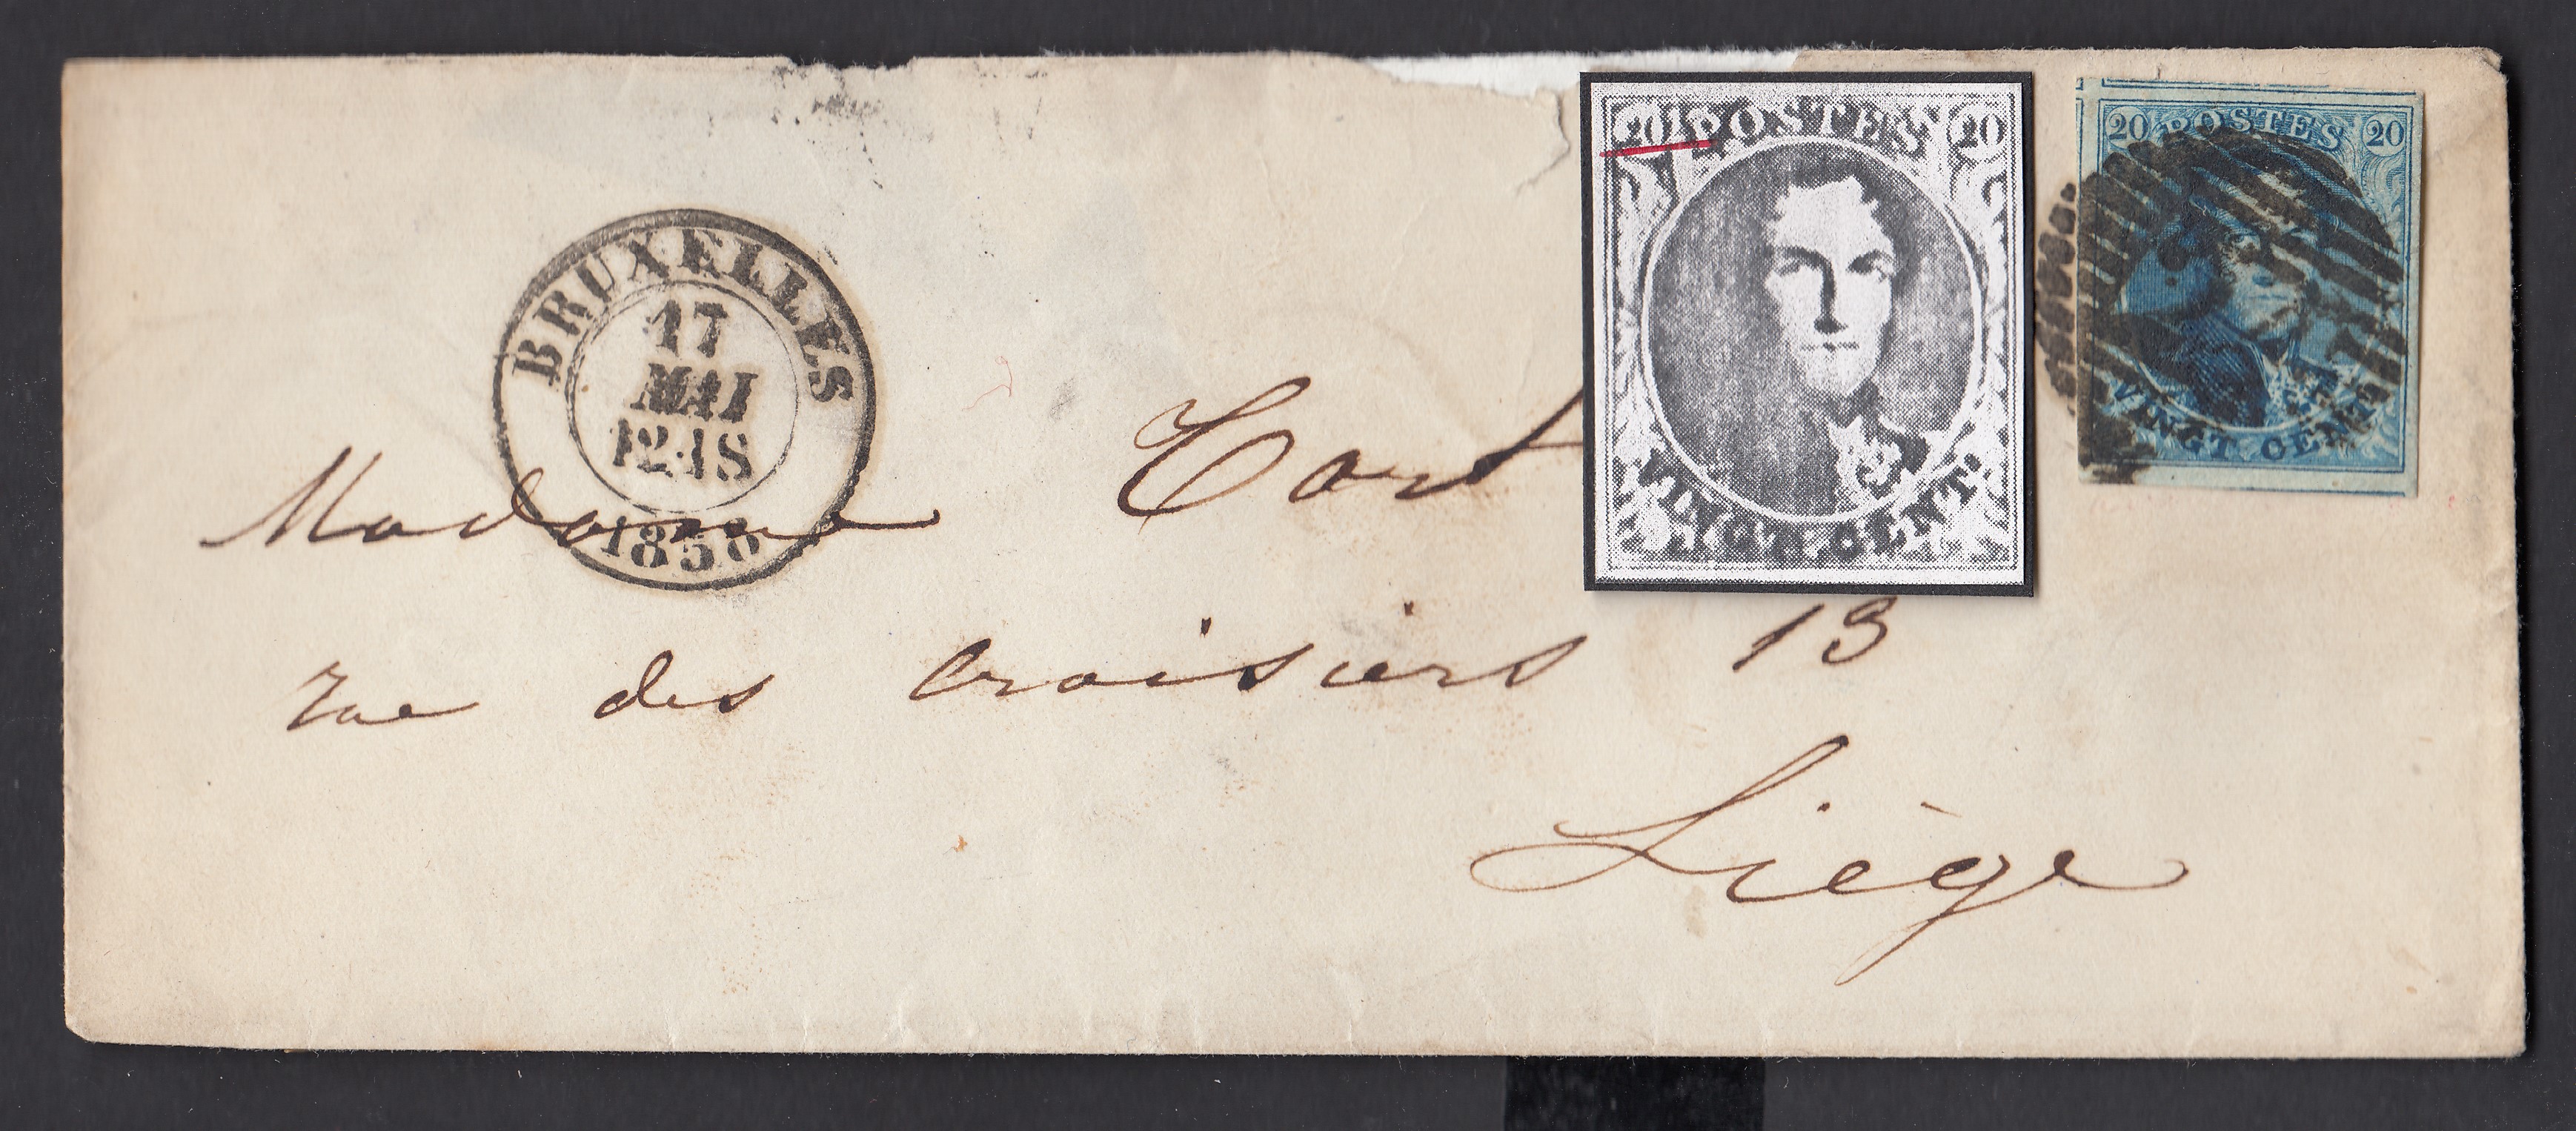 BRUXELLES
17
MAI
12-1S
1858
20 POSTES 20
VINGT CENTS
20 POSTES 20
VINGT CENTS
Madame
rue des Croisiers 13
Liège